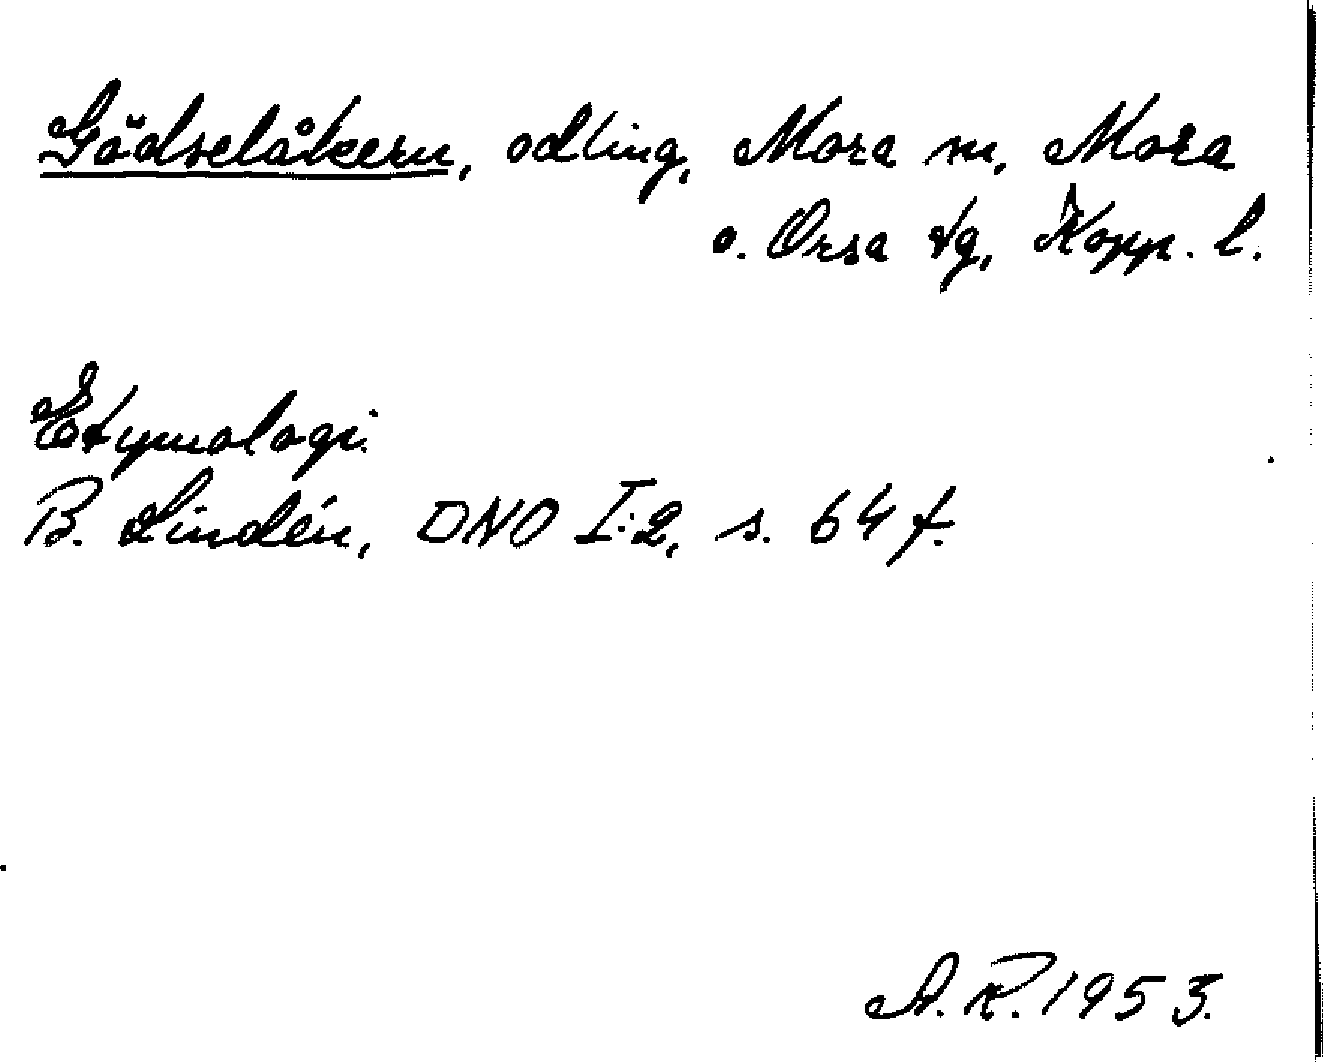 Gödselåkern, odling, Mora sn, Mora
o. Orsa tg, Kopp. l.
Etymologi.
B. Lindén, DNO I:2, s. 64 f.
A.R. 1953.